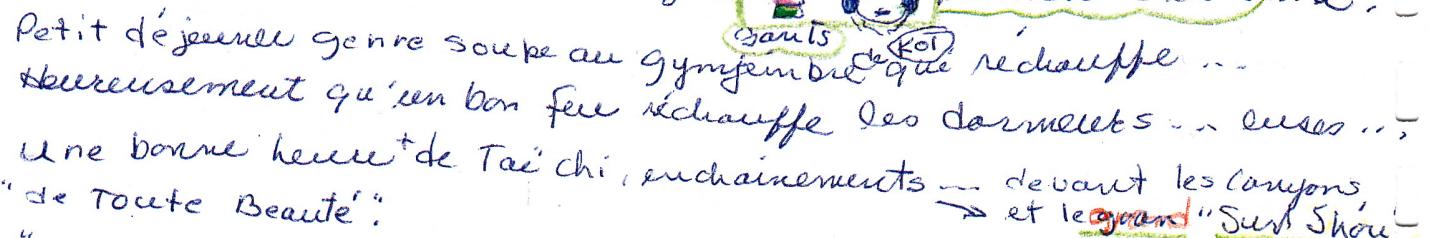 Gants
KOT
Petit déjeuner genre soupe au gymjeimbre de que réchauffe ...
Heureusement qu'un bon feu réchauffe les dormeurs ... euses ...
Une bonne heure + de Taï chi, enchainements ... devant les Canyons
"de Toute Beauté".
→ et le grand "Sun Show"